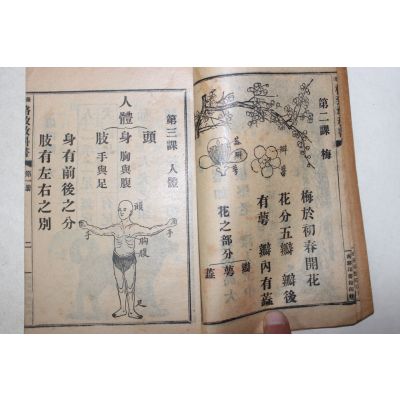 第二課 梅
梅於初春開花
花分五瓣 瓣後
有萼 瓣內有蕋
花之部分 瓣 萼 蕋
第三課 人體
人體 頭
身 胸與腹
肢 手與足
身有前後之分
肢有左右之別
頭
手
手
胸
腹
足
二